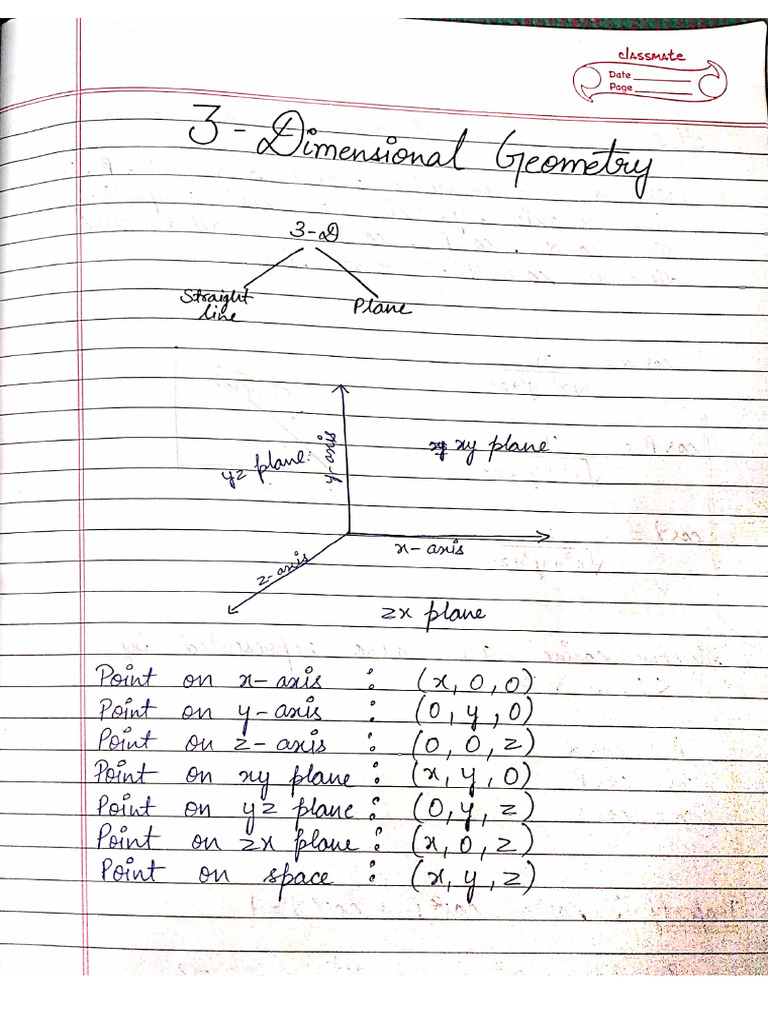 classmate
Date
Page
3-Dimensional Geometry
3-D
Straight
line
Plane
y-axis
yz plane
xy plane
x-axis
z-axis
zx plane
Point on x-axis : (x, 0, 0)
Point on y-axis : (0, y, 0)
Point on z-axis : (0, 0, z)
Point on xy plane : (x, y, 0)
Point on yz plane : (0, y, z)
Point on zx plane : (x, 0, z)
Point on space : (x, y, z)